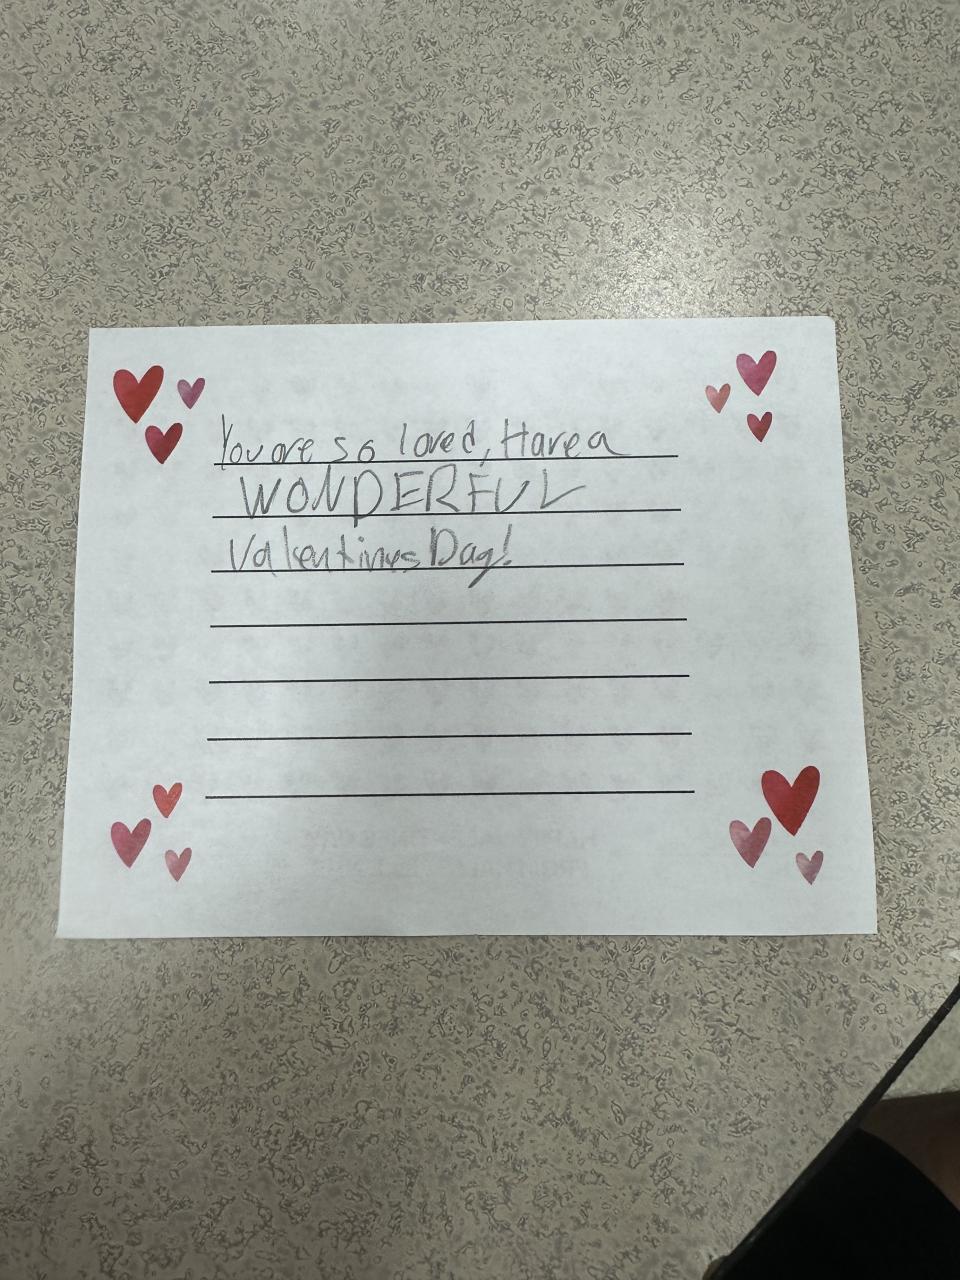 You are so loved, Have a
WONDERFUL
Valentines Day!